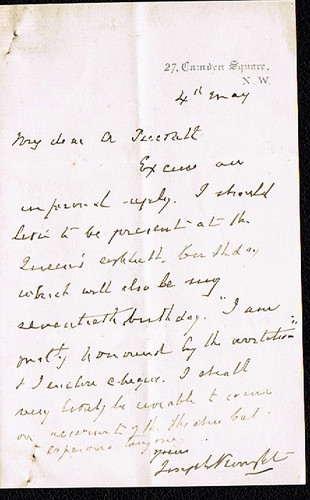 27, Camden Square,
N. W.
4th May
My dear
Excuse an
informal reply. I should
have to be present at the
Queen's eightieth birthday
which will also be my
seventieth birthday. "I am
greatly honoured by the invitation"
& I enclose cheque. I shall
very likely be unable to come
on account of the
expenses
yours